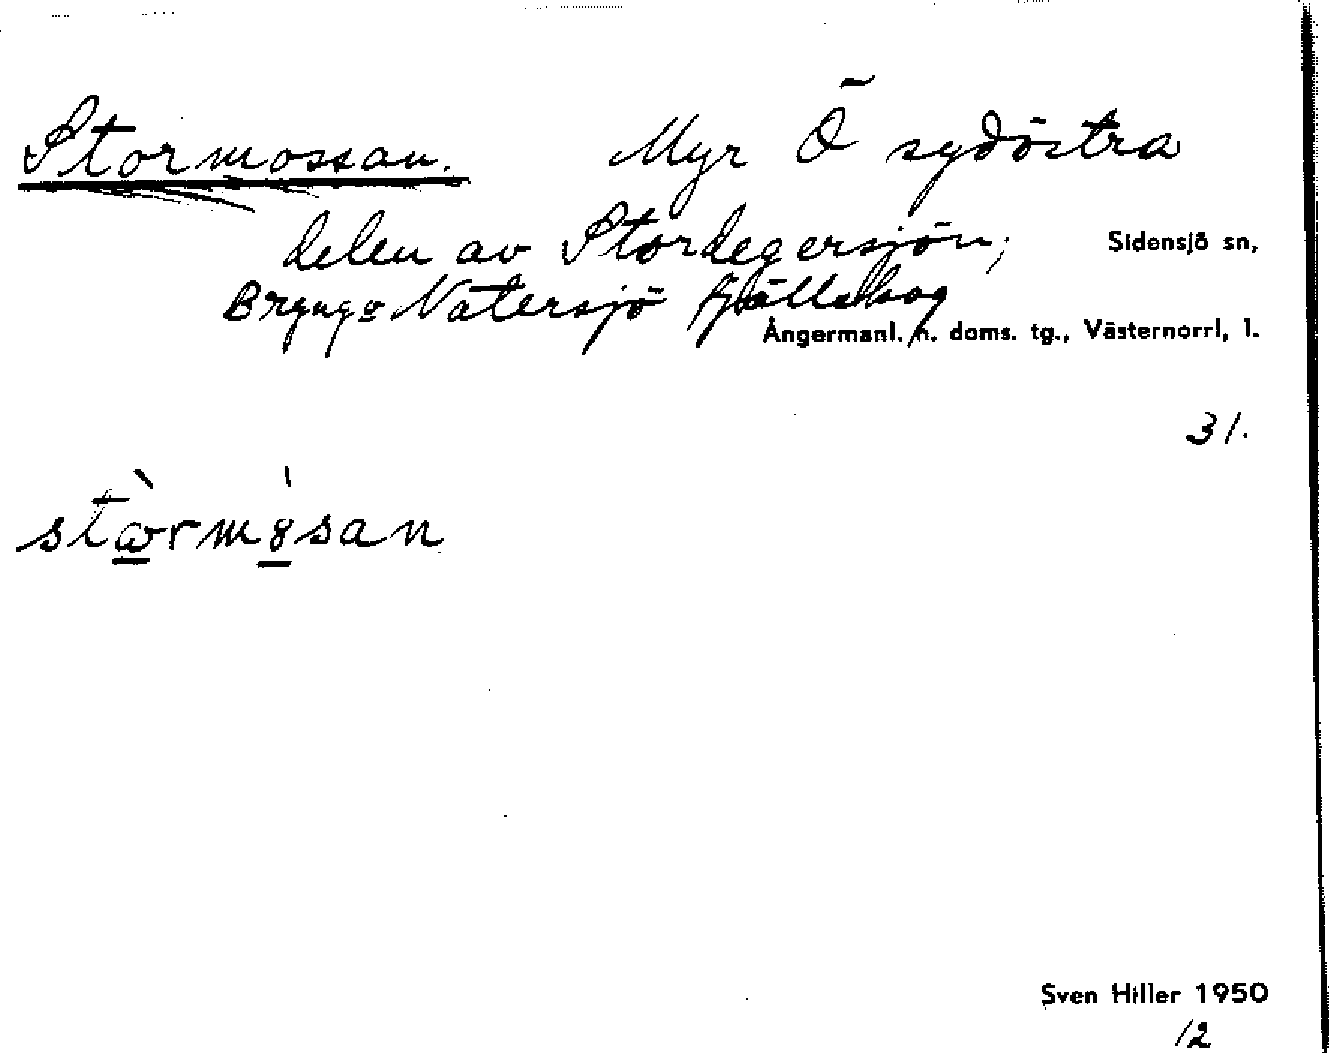 Stormossan. Myr Ö sydöstra
delen av Stordegersjön,
Sidensjö sn,
Bryngs Nätersjö fjällskog
Ångermanl. n. doms. tg., Västernorrl, l.
31.
Sven Hiller 1950
12